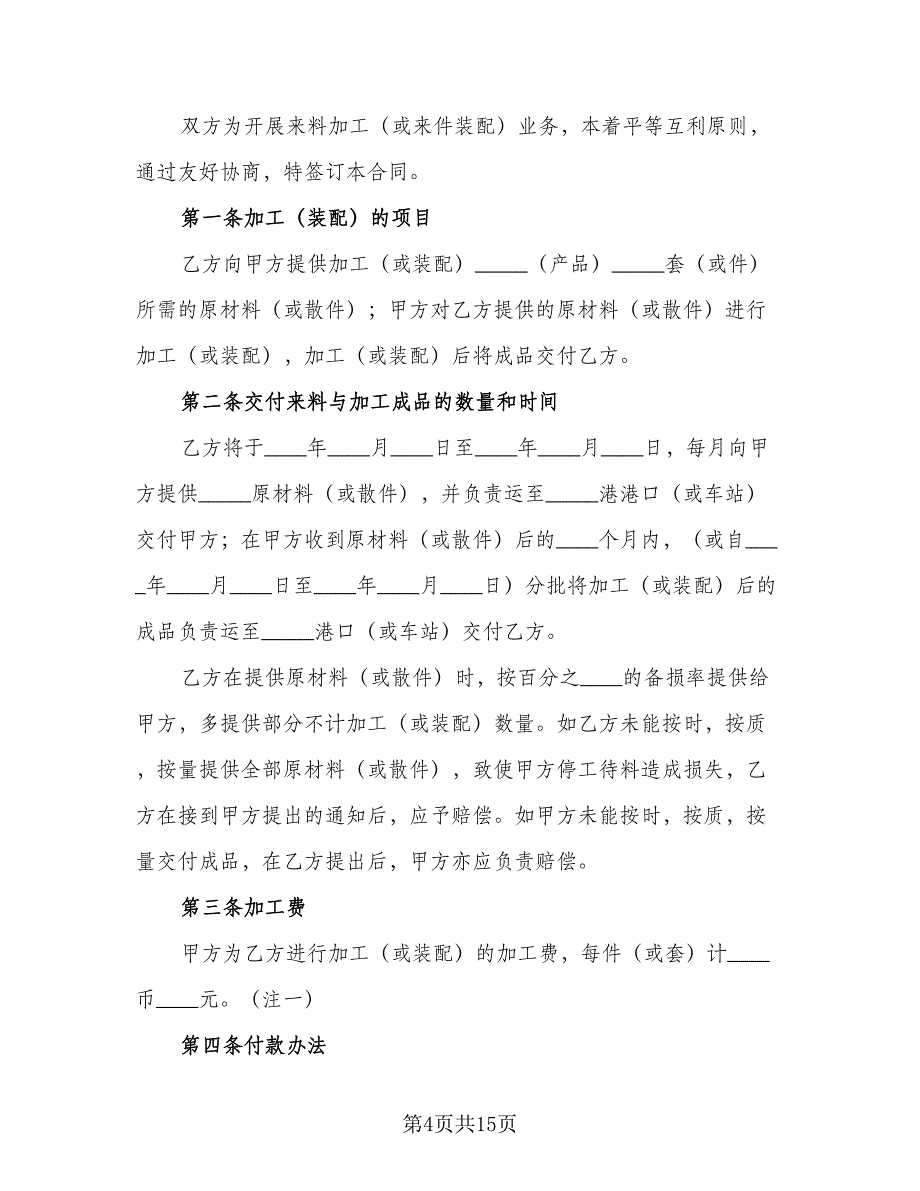 双方为开展来料加工（或来件装配）业务，本着平等互利原则，
通过友好协商，特签订本合同。
第一条加工（装配）的项目
乙方向甲方提供加工（或装配）_____（产品）_____套（或件）
所需的原材料（或散件）；甲方对乙方提供的原材料（或散件）进行
加工（或装配），加工（或装配）后将成品交付乙方。
第二条交付来料与加工成品的数量和时间
乙方将于____年____月____日至____年____月____日，每月向甲
方提供_____原材料（或散件），并负责运至_____港港口（或车站）
交付甲方；在甲方收到原材料（或散件）后的____个月内，（或自___
_年____月____日至____年____月____日）分批将加工（或装配）后的
成品负责运至_____港口（或车站）交付乙方。
乙方在提供原材料（或散件）时，按百分之____的备损率提供给
甲方，多提供部分不计加工（或装配）数量。如乙方未能按时，按质
，按量提供全部原材料（或散件），致使甲方停工待料造成损失，乙
方在接到甲方提出的通知后，应予赔偿。如甲方未能按时，按质，按
量交付成品，在乙方提出后，甲方亦应负责赔偿。
第三条加工费
甲方为乙方进行加工（或装配）的加工费，每件（或套）计____
币____元。（注一）
第四条付款办法
第4页共15页